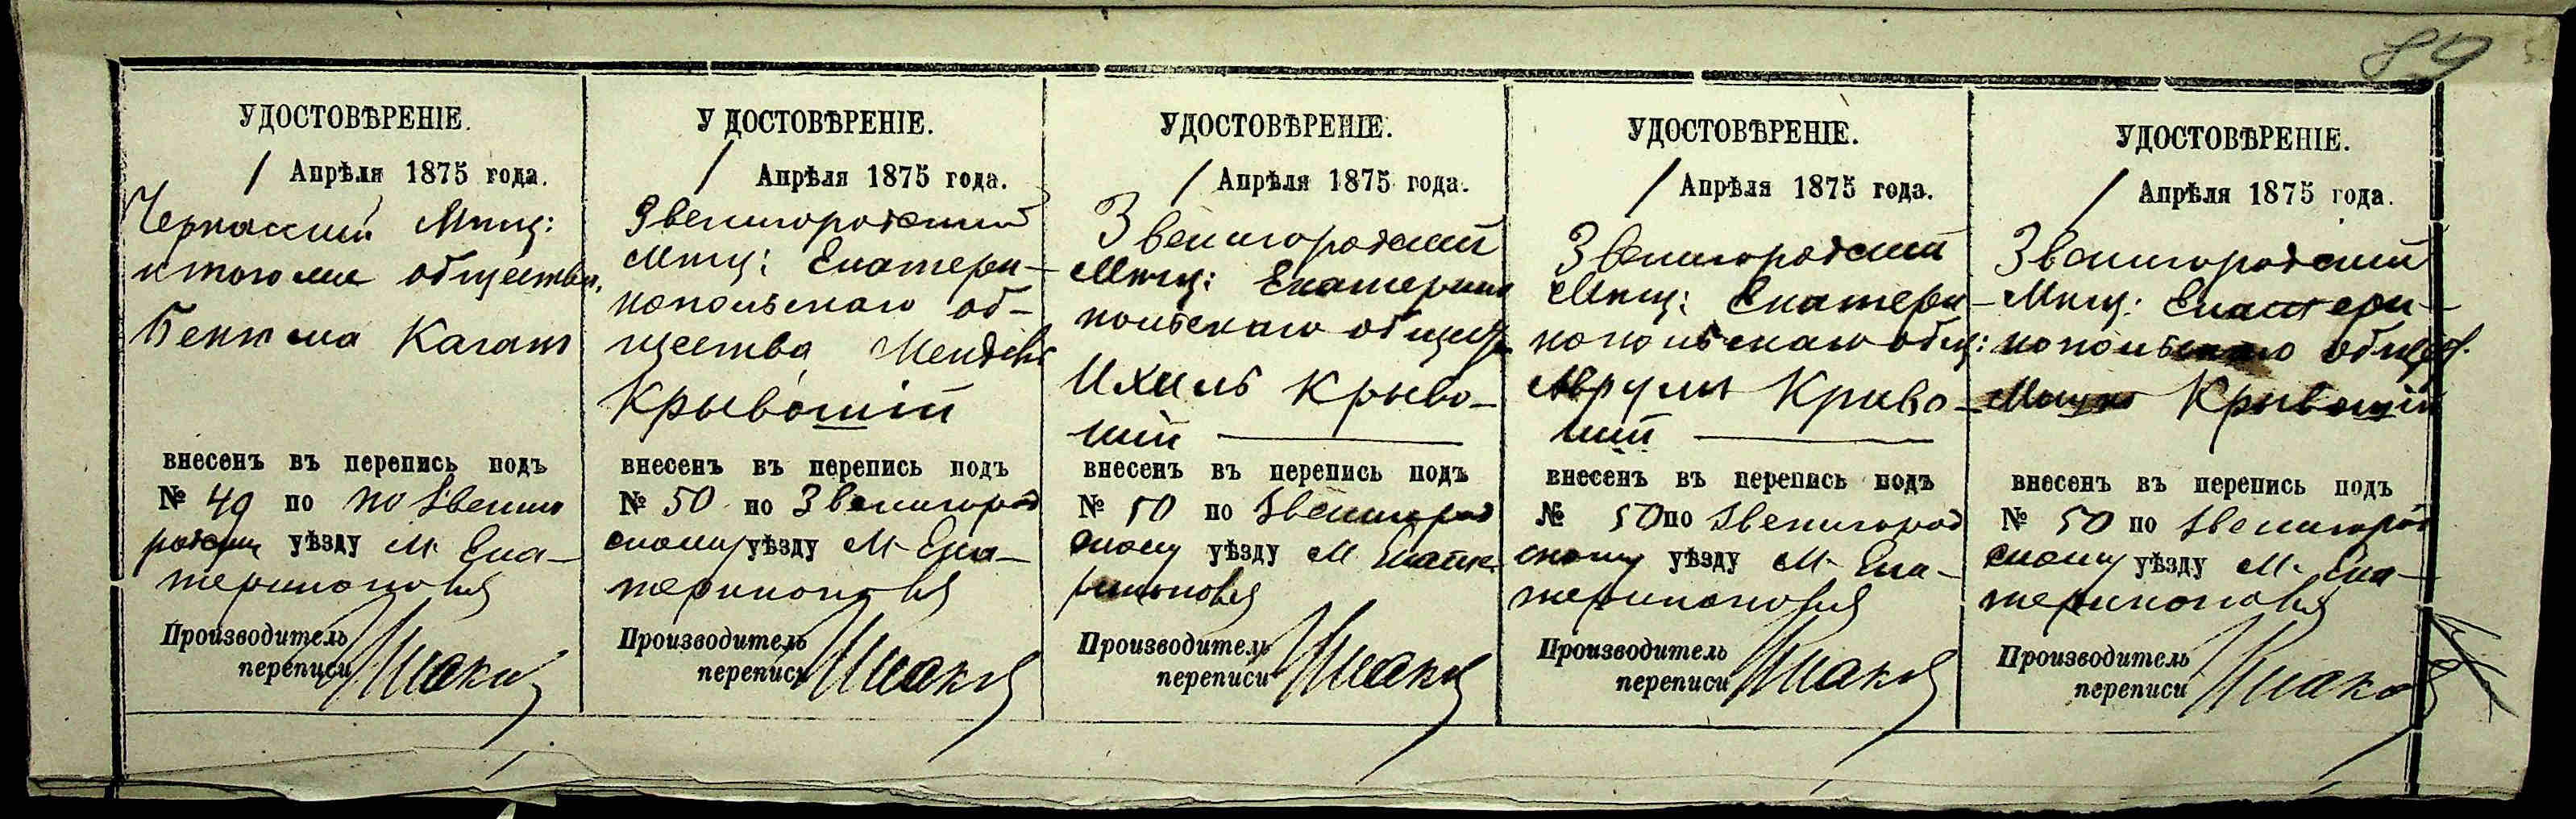 89
УДОСТОВѢРЕНІЕ.
1 Апрѣля 1875 года.
Черкасскій Мѣщ:
общества,
Каганъ
внесенъ въ перепись подъ
№ 49 по по Звениго
родском уѣзду М. Ека-
теринополя
Производитель
переписи
УДОСТОВѢРЕНІЕ.
1 Апрѣля 1875 года.
Звенигородскій
Мѣщ: Екатери-
нопольскаго об-
щества Мендель
Крывошій
внесенъ въ перепись подъ
№ 50 по Звенигород
скому уѣзду М. Ека-
теринополя
Производитель
переписи
УДОСТОВѢРЕНІЕ.
1 Апрѣля 1875 года.
Звенигородскій
Мѣщ: Екатерино
польскаго общест
Ихиль Крыво-
шій
внесенъ въ перепись подъ
№ 50 по Звенигород
скому уѣзду М Екате
ринополя
Производитель
переписи
УДОСТОВѢРЕНІЕ.
1 Апрѣля 1875 года.
Звенигородскій
Мѣщ: Екатери-
нопольскаго общ:
Аврумъ Криво-
шій
внесенъ въ перепись подъ
№ 50 по Звенигород
скому уѣзду М. Ека-
теринополя
Производитель
переписи
УДОСТОВѢРЕНІЕ.
1 Апрѣля 1875 года.
Звенигородскій
Мѣщ: Екатери-
нопольскаго общест.
Мошко Крывошій
внесенъ въ перепись подъ
№ 50 по Звенигород
скому уѣзду М. Ека-
теринополя
Производитель
переписи